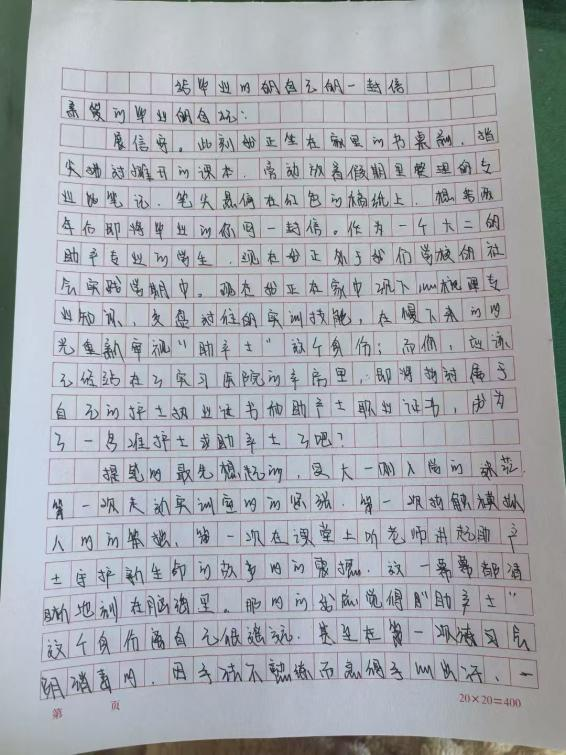 给毕业时的自己的一封信
亲爱的毕业的自己:
展信安。此刻我正坐在家里的书桌前,指
尖拂过摊开的课本,旁边放着假期里整理的专
业课笔记,笔尖悬停在红色的稿纸上,想给两
年后即将毕业的你写一封信。作为一个大二的
助产专业的学生,现在我正处于我们学校的社
会实践学期中。现在我正在家中沉下心梳理专
业知识,复盘过往的实训技能,在慢下来的时
光重新审视“助产士”这个身份;而你,应该
已经站在了实习医院的产房里,即将拥有属于
自己的护士执业证书和助产士职业证书,成为
了一名准护士或助产士了吧?
提笔时最先想起的,是大一刚入学的
第一次走进实训室时的紧张,第一次
人时的笨拙,第一次在课堂上听老师讲起助产
士守护新生命的故事时的震撼,这一幕幕都清
晰地刻在脑海里。那时的我总觉得“助产士”
这个身份离自己很遥远,甚至在第一次练习会
阴消毒时,因手法不熟练而急得手心出汗,一
第 页
20×20=400